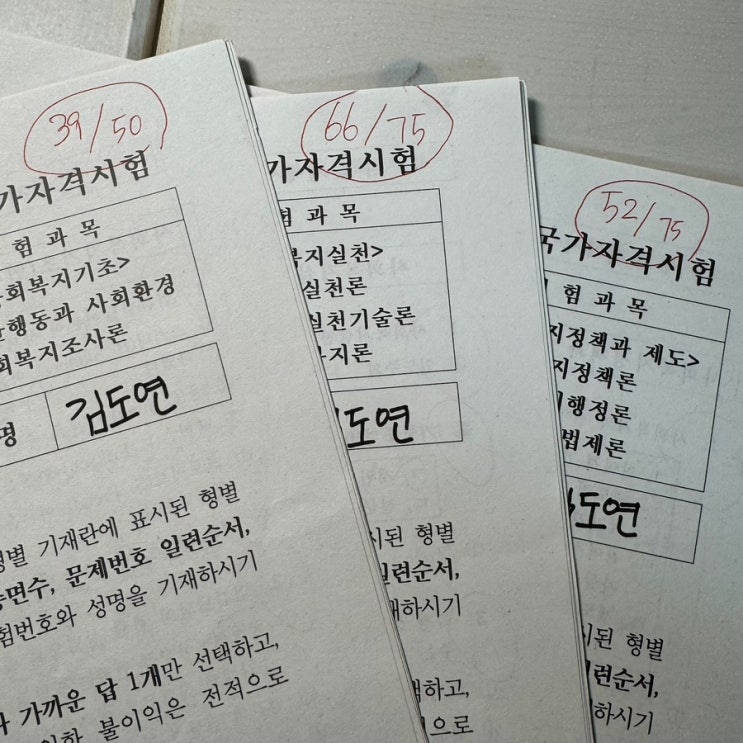 39/50
가자격시험
험 과 목
회복지기초>
행동과 사회환경
회복지조사론
명 김도연
형별 기재란에 표시된 형별
면수, 문제번호 일련순서,
험번호와 성명을 기재하시기
가까운 답 1개만 선택하고,
불이익은 전적으로
66/75
가자격시험
험 과 목
복지실천>
실천론
실천기술론
지론
도연
시된 형별
일련순서,
재하시기
택하고,
적으로
52/75
국가자격시험
험 과 목
지정책과 제도>
지정책론
행정론
법제론
도연
시된 형별
일련순서,
하시기